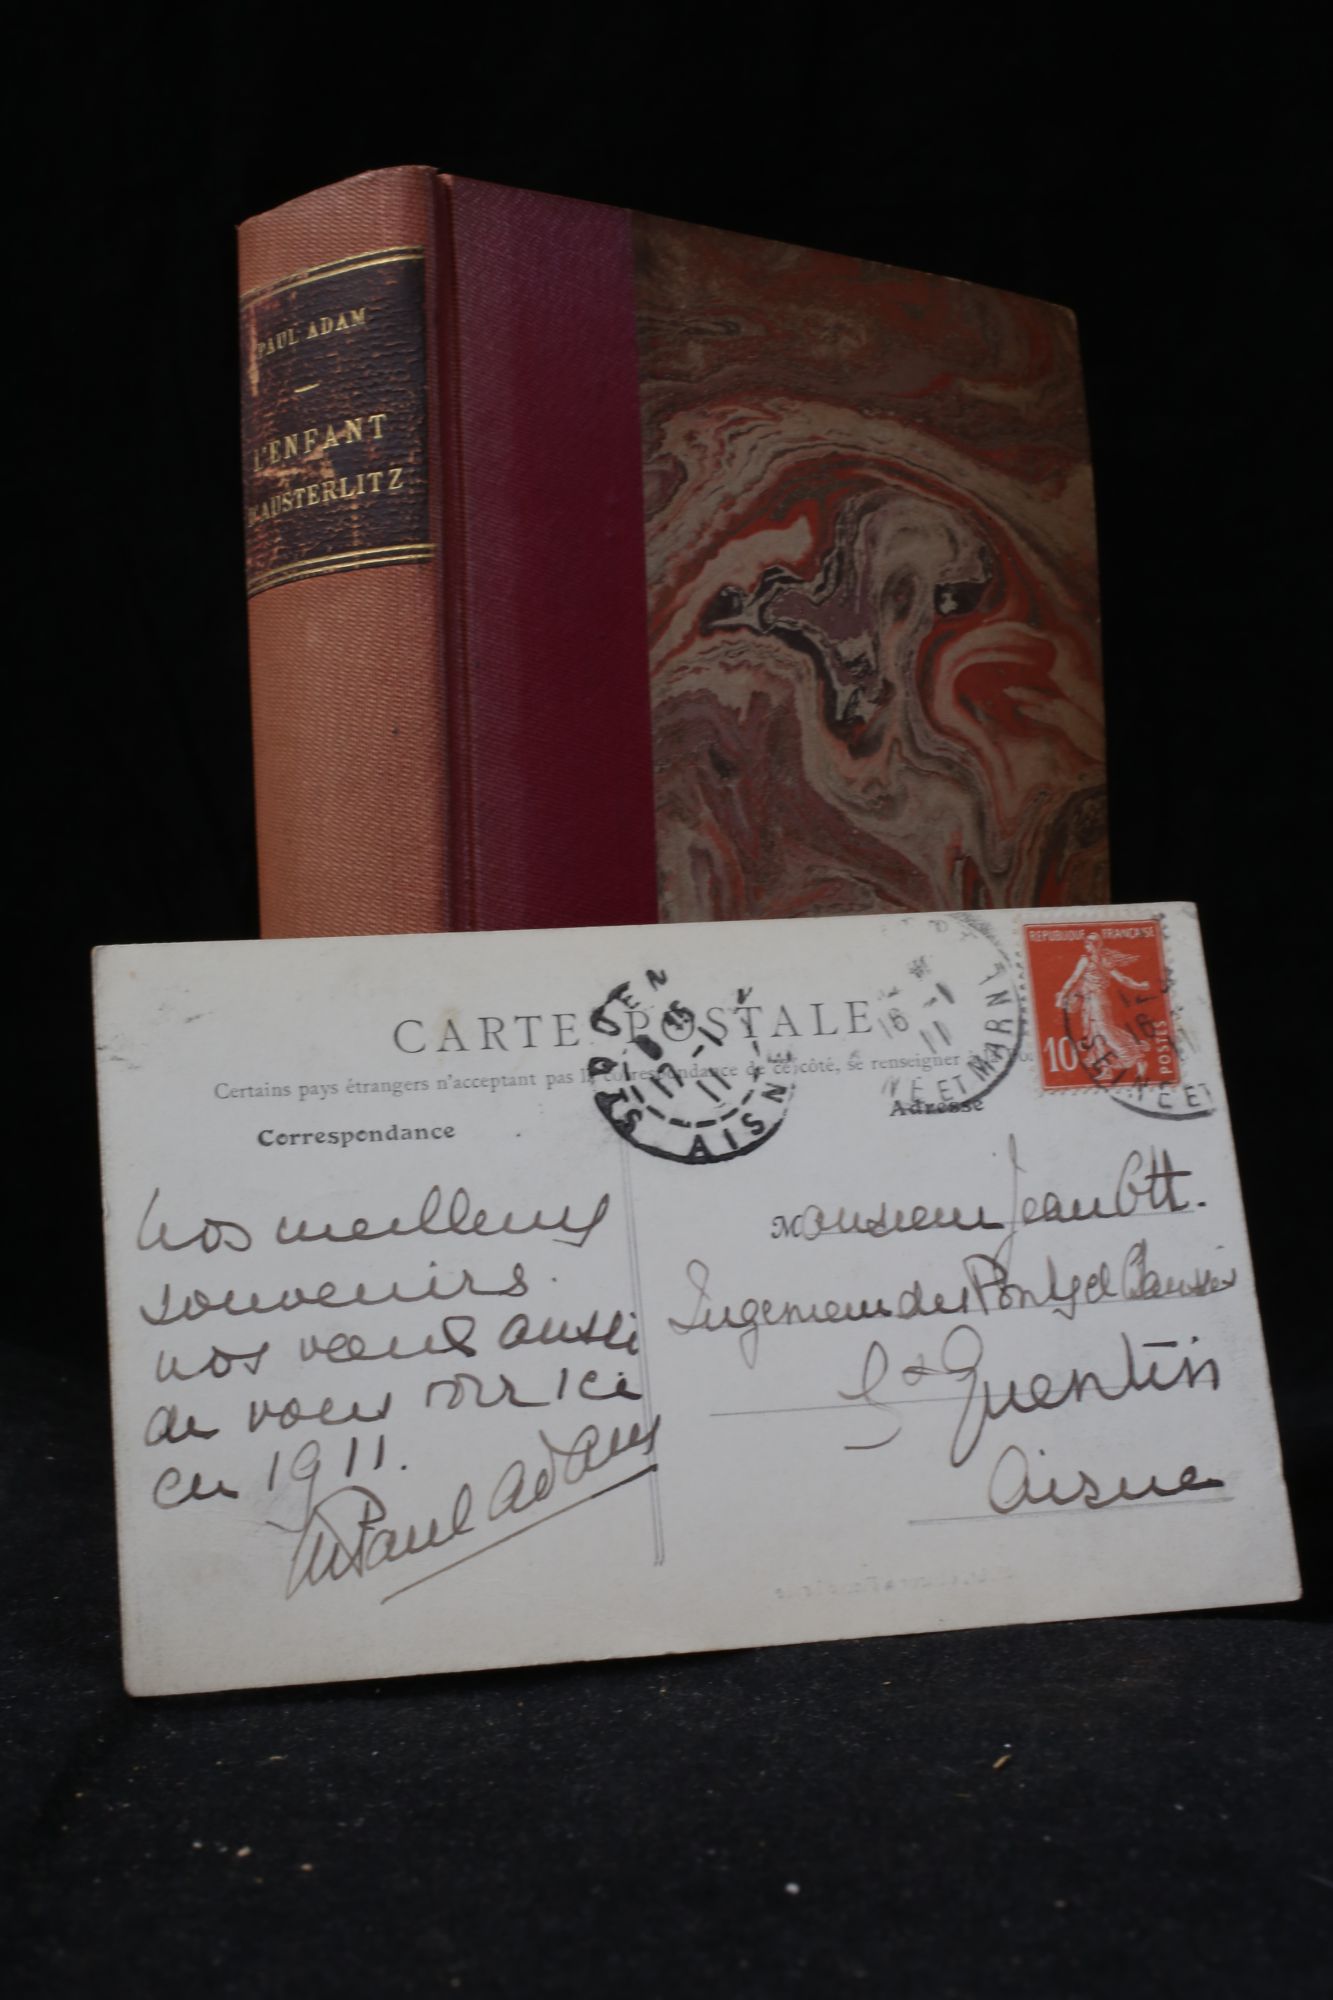 PAUL ADAM
L'ENFANT
D'AUSTERLITZ
CARTE POSTALE
Certains pays étrangers n'acceptent pas la correspondance de ce côté, se renseigner à la
Correspondance
Adresse
Nos meilleurs
souvenirs.
nos vœux aussi
de vous voir ici
en 1911.
Paul Adam
Monsieur Jean Ott.
Ingenieur des Ponts et Chaussées
St Quentin
Aisne
ST QUENTIN
17-1
11
AISNE
16-1
11
SEINE ET MARNE
REPUBLIQUE FRANÇAISE
10
POSTES
16
11
SEINE ET